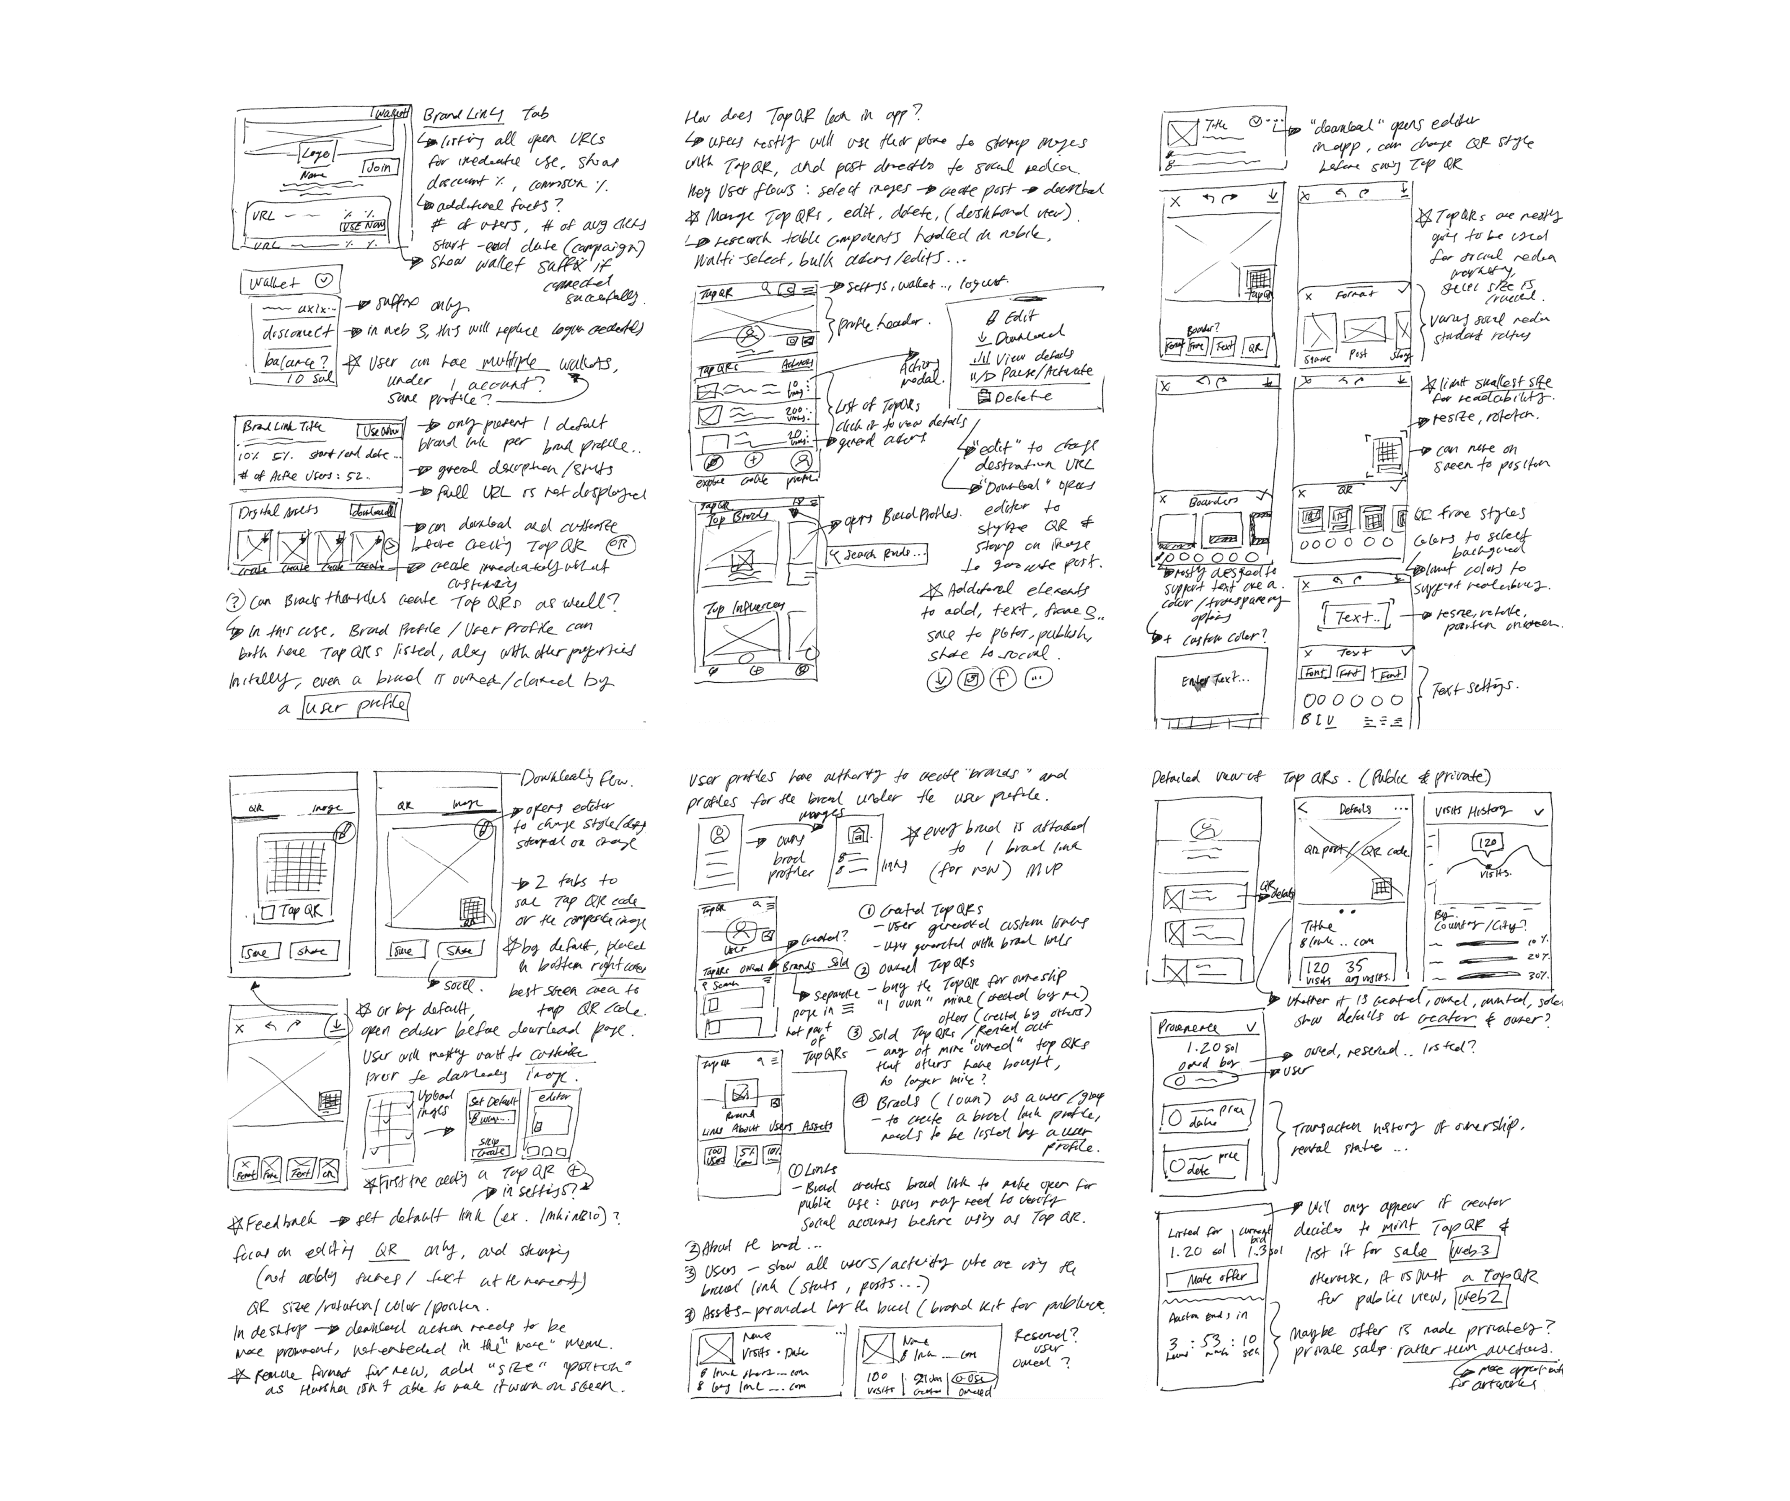 Wallet
Logo
Name
Join
URL
% %
USE NOW
URL
% %
Brand Links Tab
↳ listing all open URLs
for immediate use, show
discount %, commission %.
↳ additional facts?
# of users, # of avg clicks
start - end date (campaign)
↳ show wallet suffix if
connected
successfully.
Wallet
... axix...
→ suffix only
disconnect
→ in web 3, this will replace login credentials
balance?
10 sol
☆ User can have multiple wallets,
under 1 account?
same profile?
Brand Link Title
Use Now
10% 5% start/end date...
# of Active Users: 52..
→ only present 1 default
brand link per brand profile..
→ general description/stats
→ full URL is not displayed
Digital Assets
download
create create create create
→ can download and customize
before creating Tap QR OR
→ create immediately without
customizing
? Can Brands themselves create Tap QRs as well?
↳ In this case, Brand Profile / User Profile can
both have Tap QRs listed, along with other properties
Initially, even a brand is owned/claimed by
a user profile
How does Tap QR look in app?
↳ users mostly will use their phone to stamp images
with Tap QR, and post directly to social media.
Key User flows: select images → create post → download
☆ Manage Tap QRs, edit, delete, (dashboard view).
↳ research table components handled in mobile,
multi-select, bulk actions/edits...
Tap QR
→ settings, wallet.., logout.
profile header.
Tap QRs
Actions
10
200
20
explore create profile
Actions
modal.
List of Tap QRs
click it to view details
→ general actions
Edit
Download
View details
Pause/Activate
Delete
→ "edit" to change
destination URL
→ "Download" opens
editor to
stylize QR &
stamp on image
to generate post.
Tap QR
Top Brands
→ opens Brand Profiles.
Search Brands...
Top Influencers
☆ Additional elements
to add, text, frames..
save to photos, publish,
share to social.
Title
→ "download" opens editor
in app, can change QR style
before saving Tap QR
X
Tap QR
Boarder?
Format Frame Text QR
X
☆ Tap QRs are mostly
going to be used
for social media
marketing,
select size is
crucial.
X Format
Square Post Story
various social media
standard ratios
X
X
☆ limit smallest size
for readability.
→ resize, rotation.
→ can move on
screen to position
X Boarders ✓
→ mostly designed to
support text over a
color/transparency
options
→ + custom color?
X QR ✓
QR frame styles
Colors to select
background
→ limit colors to
support readability.
X
Text..
→ resize, rotate,
position onscreen.
Enter Text...
X Text ✓
Font Font Font
B I U
Text settings.
QR image
Tap QR
Save Share
QR image
Save Share
→ social.
Downloading flow.
→ opens editor
to change style/design
stamped on image
→ 2 tabs to
save Tap QR code
or the composite image
☆ by default, placed
in bottom right corner
best screen area to
tap QR code.
X
Format Frame Text QR
☆ or by default,
open editor before download page.
User will mostly want to customize
prior to downloading image.
Upload
images
Set Default
Skip
Create
editor
☆ First time creating a Tap QR +
→ in settings?
☆ Feedback → set default link (ex. linkinbio)?
focus on editing QR only, and stamping
(not adding frames / text at the moment)
QR size/rotation/color/position.
In desktop → download action needs to be
more prominent, not embeded in the "more" menu.
☆ Remove format for now, add "size" "position"
as Harshan isn't able to make it work on screen.
User profiles have authority to create "brands" and
profiles for the brand under the user profile.
manages
→ owns
brand
profiles
links
☆ every brand is attached
to 1 brand link
(for now) MVP
Tap QR
User
→ Created?
Tap QRs Owned Brands Sold
Search
→ separate
page in ≡
not part
of
Tap QRs
① Created Tap QRs
- user generated custom links
- user generated with brand links
② Owned Tap QRs
- buy the Tap QR for ownership
"I own" mine (created by me)
others (created by others)
③ Sold Tap QRs / Rented out
- any of mine "owned" Tap QRs
that others have bought,
no longer mine?
④ Brands (I own) as a user/group
- to create a brand link profile,
needs to be listed by a user
profile.
Tap QR
Brand
Links About Users Assets
100 5% 10%
① Links
- Brand creates brand link to make open for
public use: users may need to verify
social acounts before using as Tap QR.
② About the brand...
③ Users - show all users/activity who are using the
brand link (stats, posts...)
④ Assets - provided by the brand (brand kit for publicity.
Name
Visits · Date
link short.... com
long link .... com
Name
link .... com
100
visits
creator
owned
Reserved?
user
owned?
Detailed view of Tap QRs. (Public & private)
→ QR
details
< Details ...
QR post / QR code
Title
link .. com
120 35
visits avg visits.
Visits History ✓
120
visits.
By:
Country/City?
10%
20%
30%
→ whether it is created, owned, minted, sold.
show details of creator & owner?
Provenance ✓
1.20 sol
owned by
→ owned, reserved... listed?
→ user
price
date
price
date
Transaction history of ownership,
rental state ...
Listed for
1.20 sol
current
bid
1.3 sol
Make offer
Auction ends in
3 : 53 : 10
→ Will only appear if creator
decides to mint Tap QR &
list it for sale web3
otherwise, it is just a Tap QR
for public view, web2
Maybe offer is made privately?
private sale rather than auctions.
→ more opportunity
for artworks